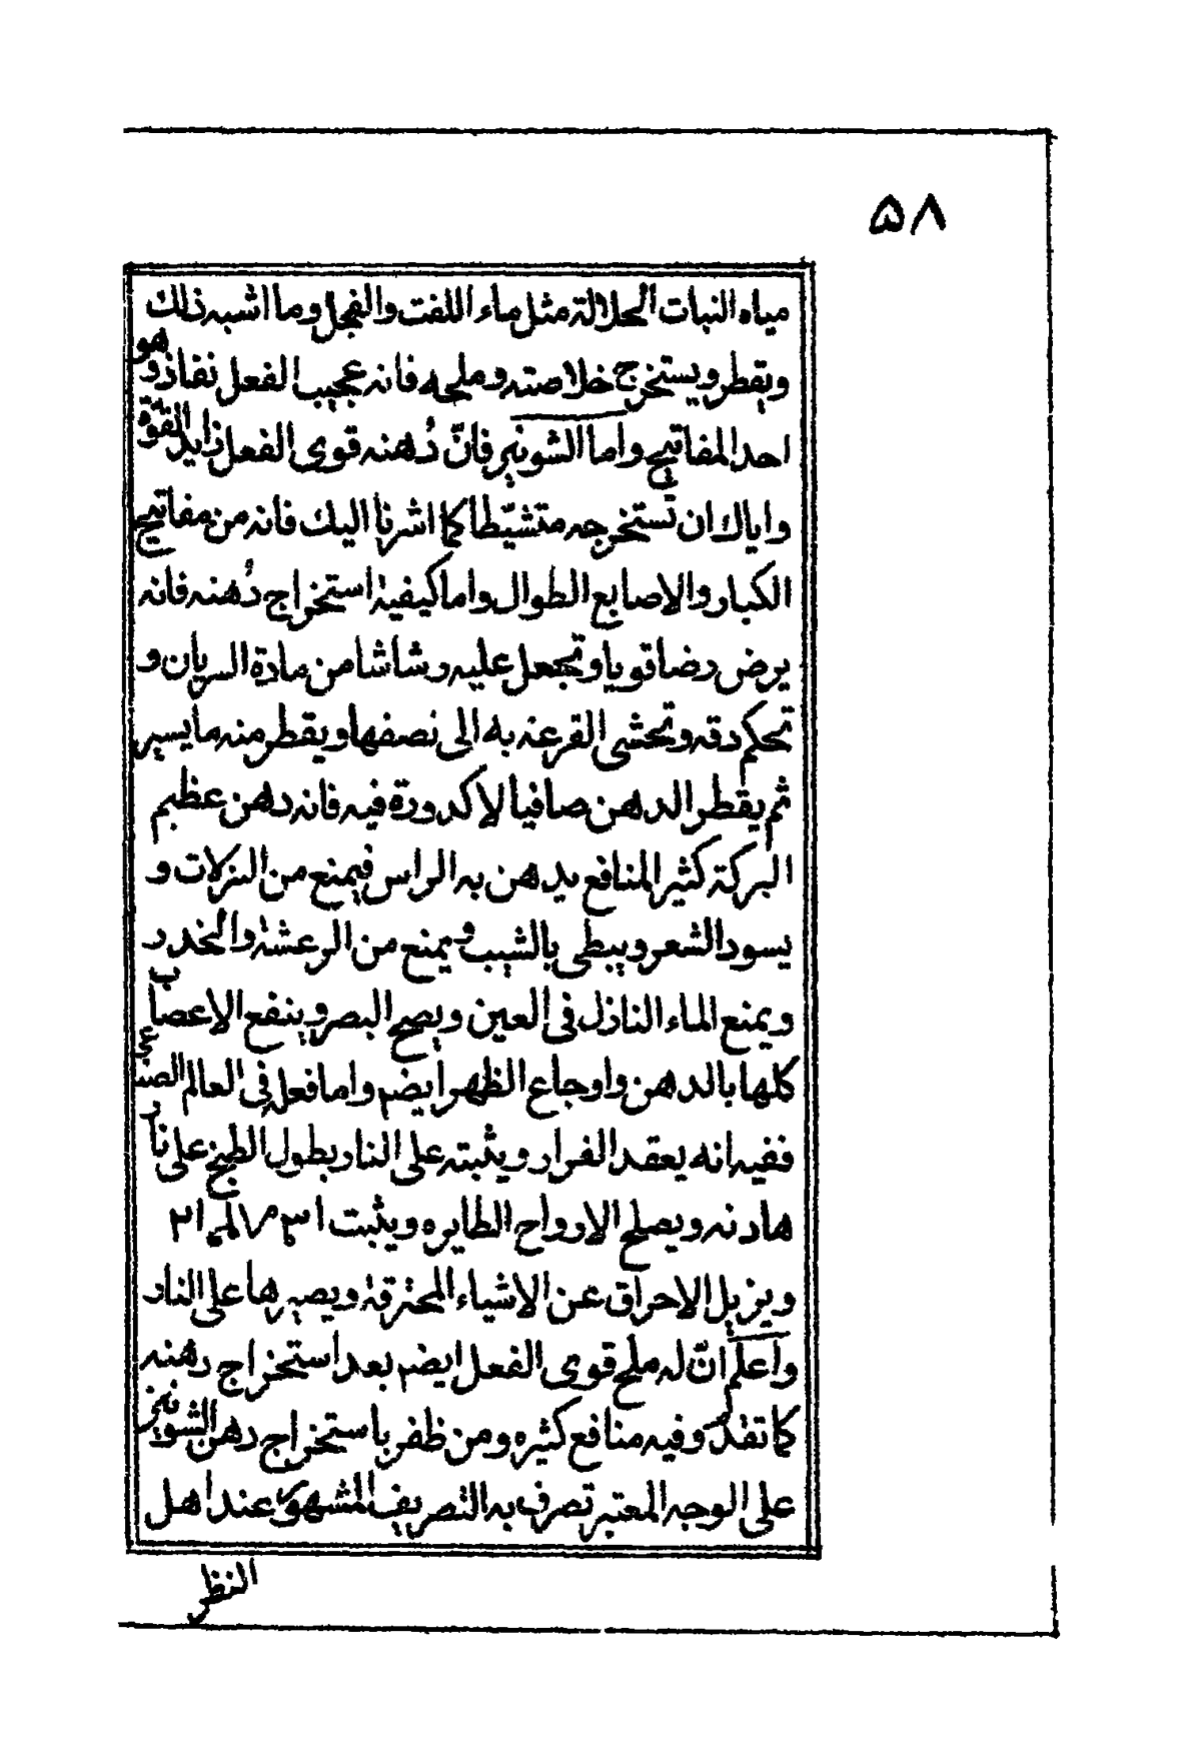 ۵۸
مياه النبات الحلالة مثل ماء اللفت والفجل وما اشبه ذلك
ويقطر ويستخرج خلاصته وملحه فانه عجيب الفعل نفاذ وهو
احد المفاتيح واما الشونيز فانّ دُهنه قوى الفعل زايد القوّة
واياك ان تستخرجه متشيّطا كما اشرنا اليك فانه من مفاتيح
الكبار والاصابع الطوال واما كيفية استخراج دُهنه فانه
يرض رضا قويا وتجعل عليه رشاشا من مادة السريان و
تحكم دقه وتحشى القرعة به الى نصفها ويقطر منه ما يسير
ثم يقطر الدهن صافيا لاكدورة فيه فانه دهن عظيم
البركة كثير المنافع يدهن به الراس فيمنع من النزلات و
يسود الشعر ويبطى بالشيب ويمنع من الرعشة والخدر
ويمنع الماء النازل فى العين ويصح البصر وينفع الاعصاب
كلها بالدهن واوجاع الظهر ايضم واما فعله فى العالم الصناعى
ففيه انه يعقد الفرار ويثبته على النار بطول الطبخ على نار
هادنه ويصلح الارواح الطايره ويثبت
ويزيل الاحراق عن الاشياء المحترقة ويصيرها على النار
واعلم انّ له ملح قوى الفعل ايضم بعد استخراج دهنه
كما تقدم وفيه منافع كثيره ومن ظفر باستخراج دهن الشونيز
على الوجه المعتبر تصرف به التصريف المشهور عند اهل
النظر